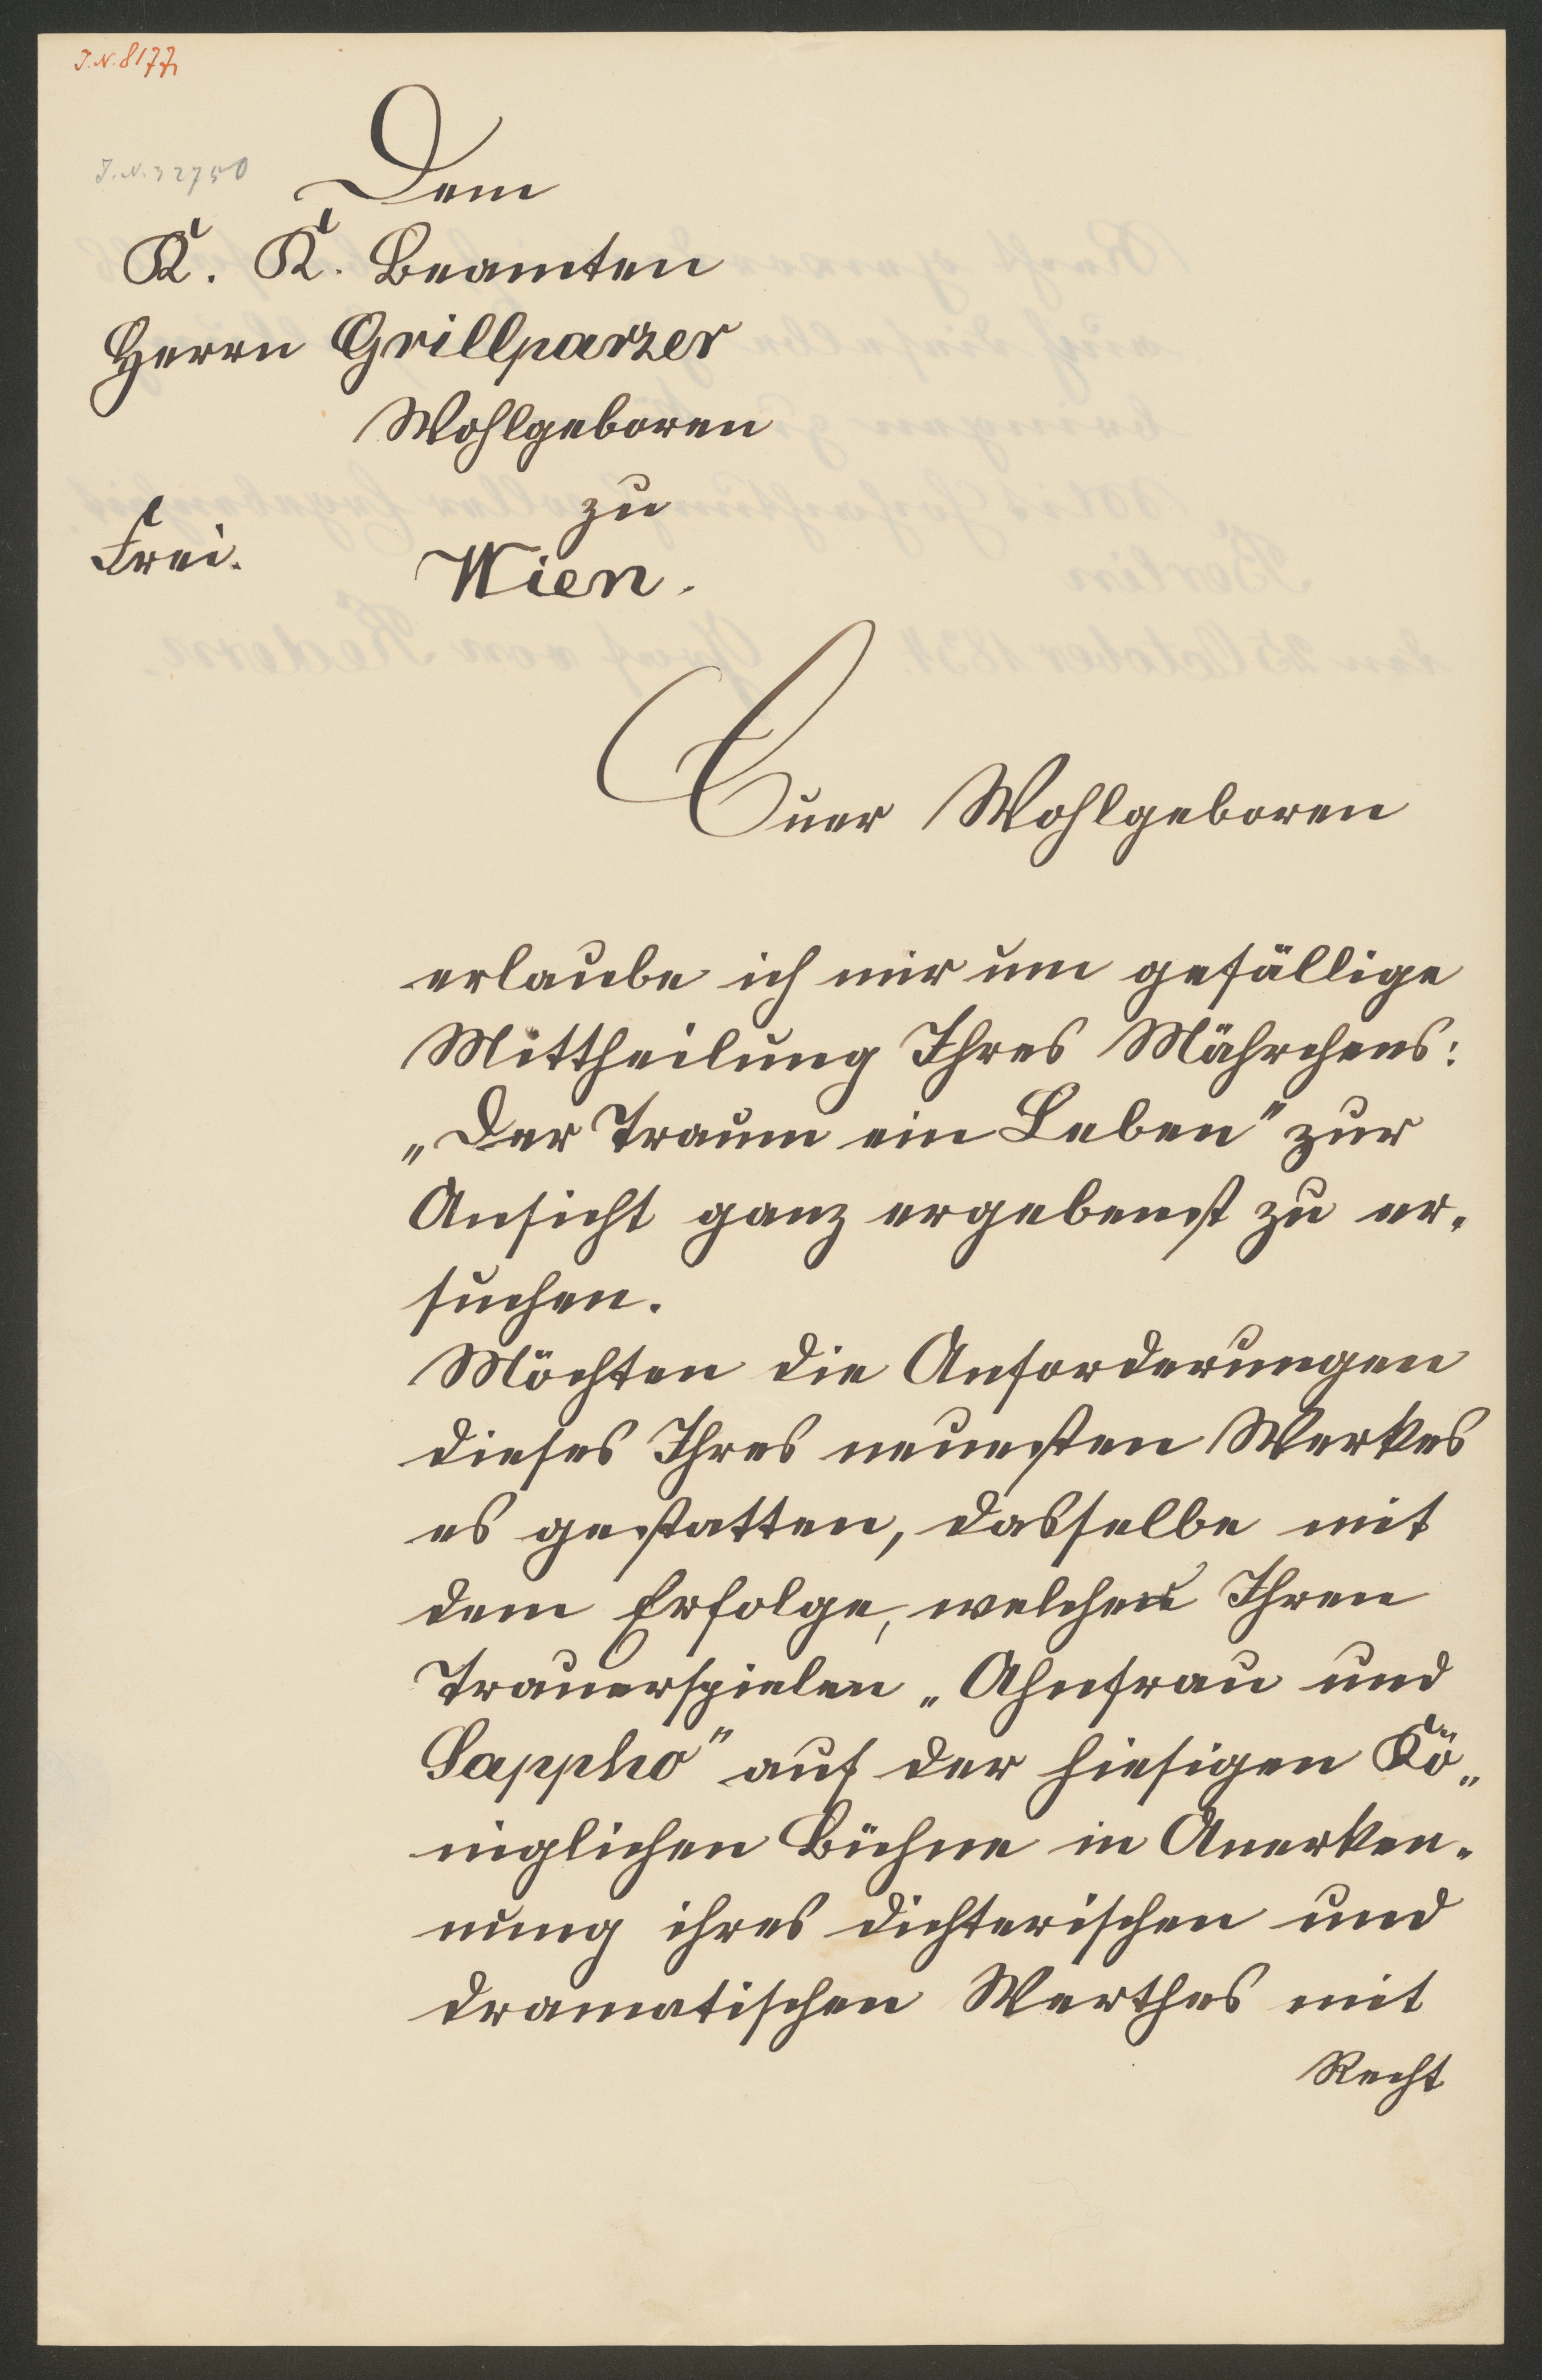 J.N. 8177
J.N. 32750
Dem
K. K. Beamten
Herrn Grillparzer
Wohlgeboren
zu
Frei. Wien.
Euer Wohlgeboren
erlaube ich mir um gefällige
Mittheilung Ihres Mährchens:
„Der Traum ein Leben" zur
Ansicht ganz ergebenst zu er-
suchen.
Möchten die Anforderungen
dieses Ihres neuesten Werkes
es gestatten, dasselbe mit
dem Erfolge, welchen Ihren
Trauerspielen „Ahnfrau und
Sappho" auf der hiesigen Kö„
niglichen Bühne in Anerken-
nung ihres dichterischen und
dramatischen Werthes mit
Recht